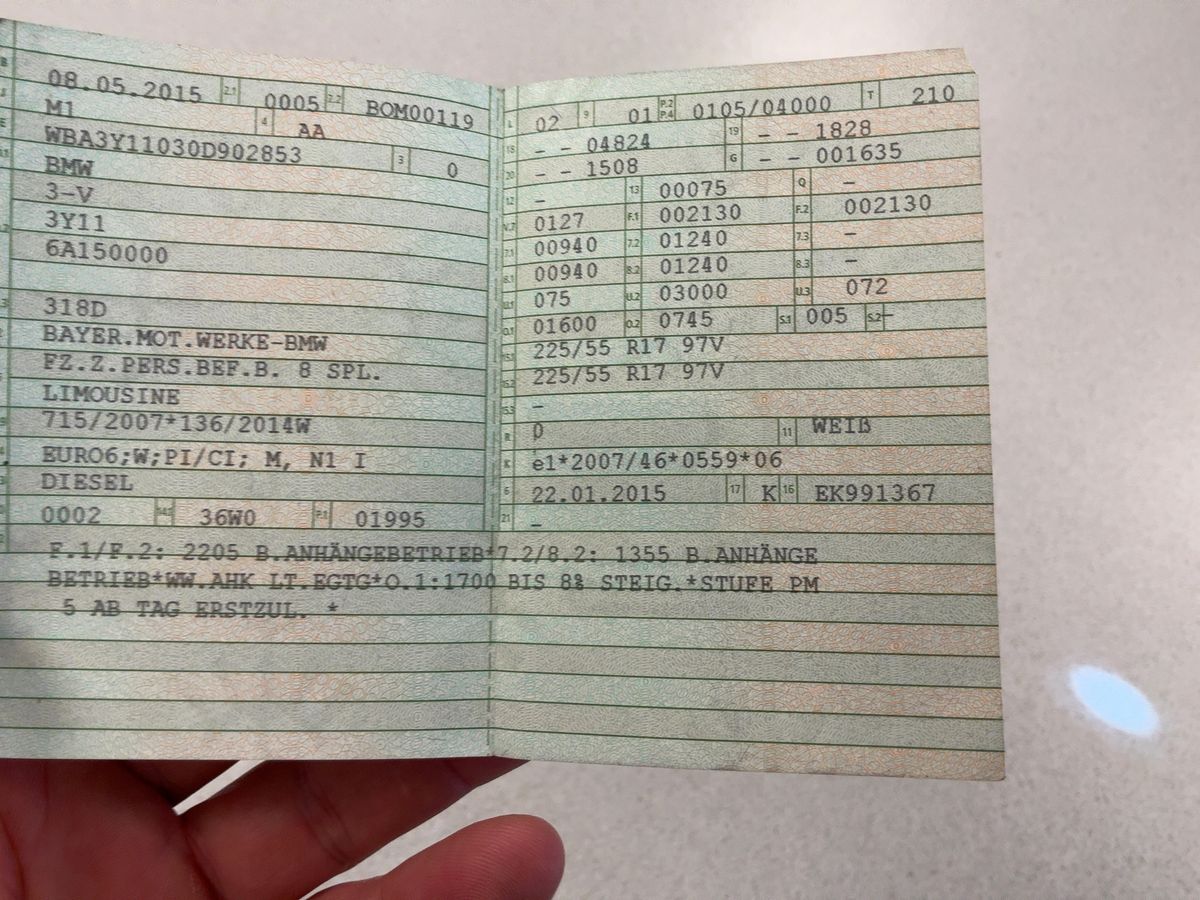 08.05.2015 2.1 0005 2.2 BOM00119
M1 4 AA
WBA3Y11030D902853 3 0
BMW
3-V
3Y11
6A150000
318D
BAYER.MOT.WERKE-BMW
FZ.Z.PERS.BEF.B. 8 SPL.
LIMOUSINE
715/2007*136/2014W
EURO6;W;PI/CI; M, N1 I
DIESEL
0002 14.1 36W0 P.1 01995
L 02 9 01 P.2 P.4 0105/04000 T 210
18 - - 04824 19 - - 1828
20 - - 1508 G - - 001635
12 - 13 00075 Q -
V.7 0127 F.1 002130 F.2 002130
7.1 00940 7.2 01240 7.3 -
8.1 00940 8.2 01240 8.3 -
U.1 075 U.2 03000 U.3 072
O.1 01600 O.2 0745 S.1 005 S.2 -
15.1 225/55 R17 97V
15.2 225/55 R17 97V
15.3 -
R 0 11 WEIß
K e1*2007/46*0559*06
6 22.01.2015 17 K 16 EK991367
21 -
F.1/F.2: 2205 B.ANHÄNGEBETRIEB*7.2/8.2: 1355 B.ANHÄNGE
BETRIEB*WW.AHK LT.EGTG*O.1:1700 BIS 8% STEIG.*STUFE PM
5 AB TAG ERSTZUL. *